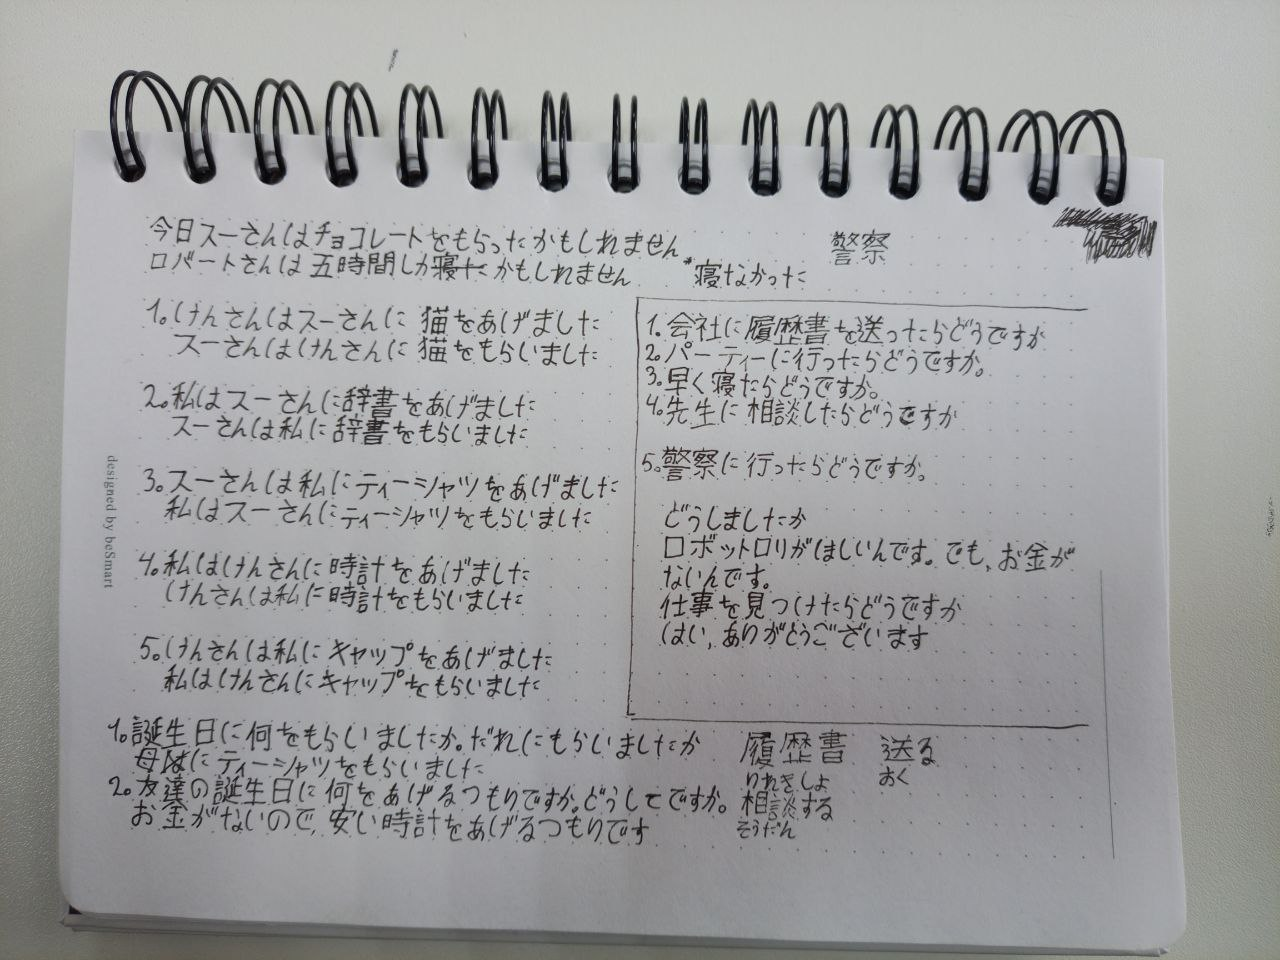 今日スーさんはチョコレートをもらったかもしれません
ロバートさんは五時間しか寝たかもしれません
*寝なかった
警察
1。けんさんはスーさんに猫をあげました
スーさんはけんさんに猫をもらいました
2。私はスーさんに辞書をあげました
スーさんは私に辞書をもらいました
3。スーさんは私にティーシャツをあげました
私はスーさんにティーシャツをもらいました
4。私はけんさんに時計をあげました
けんさんは私に時計をもらいました
5。けんさんは私にキャップをあげました
私はけんさんにキャップをもらいました
1。会社に履歴書を送ったらどうですか
2。パーティーに行ったらどうですか。
3。早く寝たらどうですか。
4。先生に相談したらどうですか
5。警察に行ったらどうですか。
どうしましたか
ロボットロリがほしいんです。でも、お金が
ないんです。
仕事を見つけたらどうですか
はい、ありがとうございます
1。誕生日に何をもらいましたか。だれにもらいましたか
母にティーシャツをもらいました
2。友達の誕生日に何をあげるつもりですか。どうしてですか。
お金がないので、安い時計をあげるつもりです
履歴書 送る
りれきしょ おく
相談する
そうだん
designed by beSmart